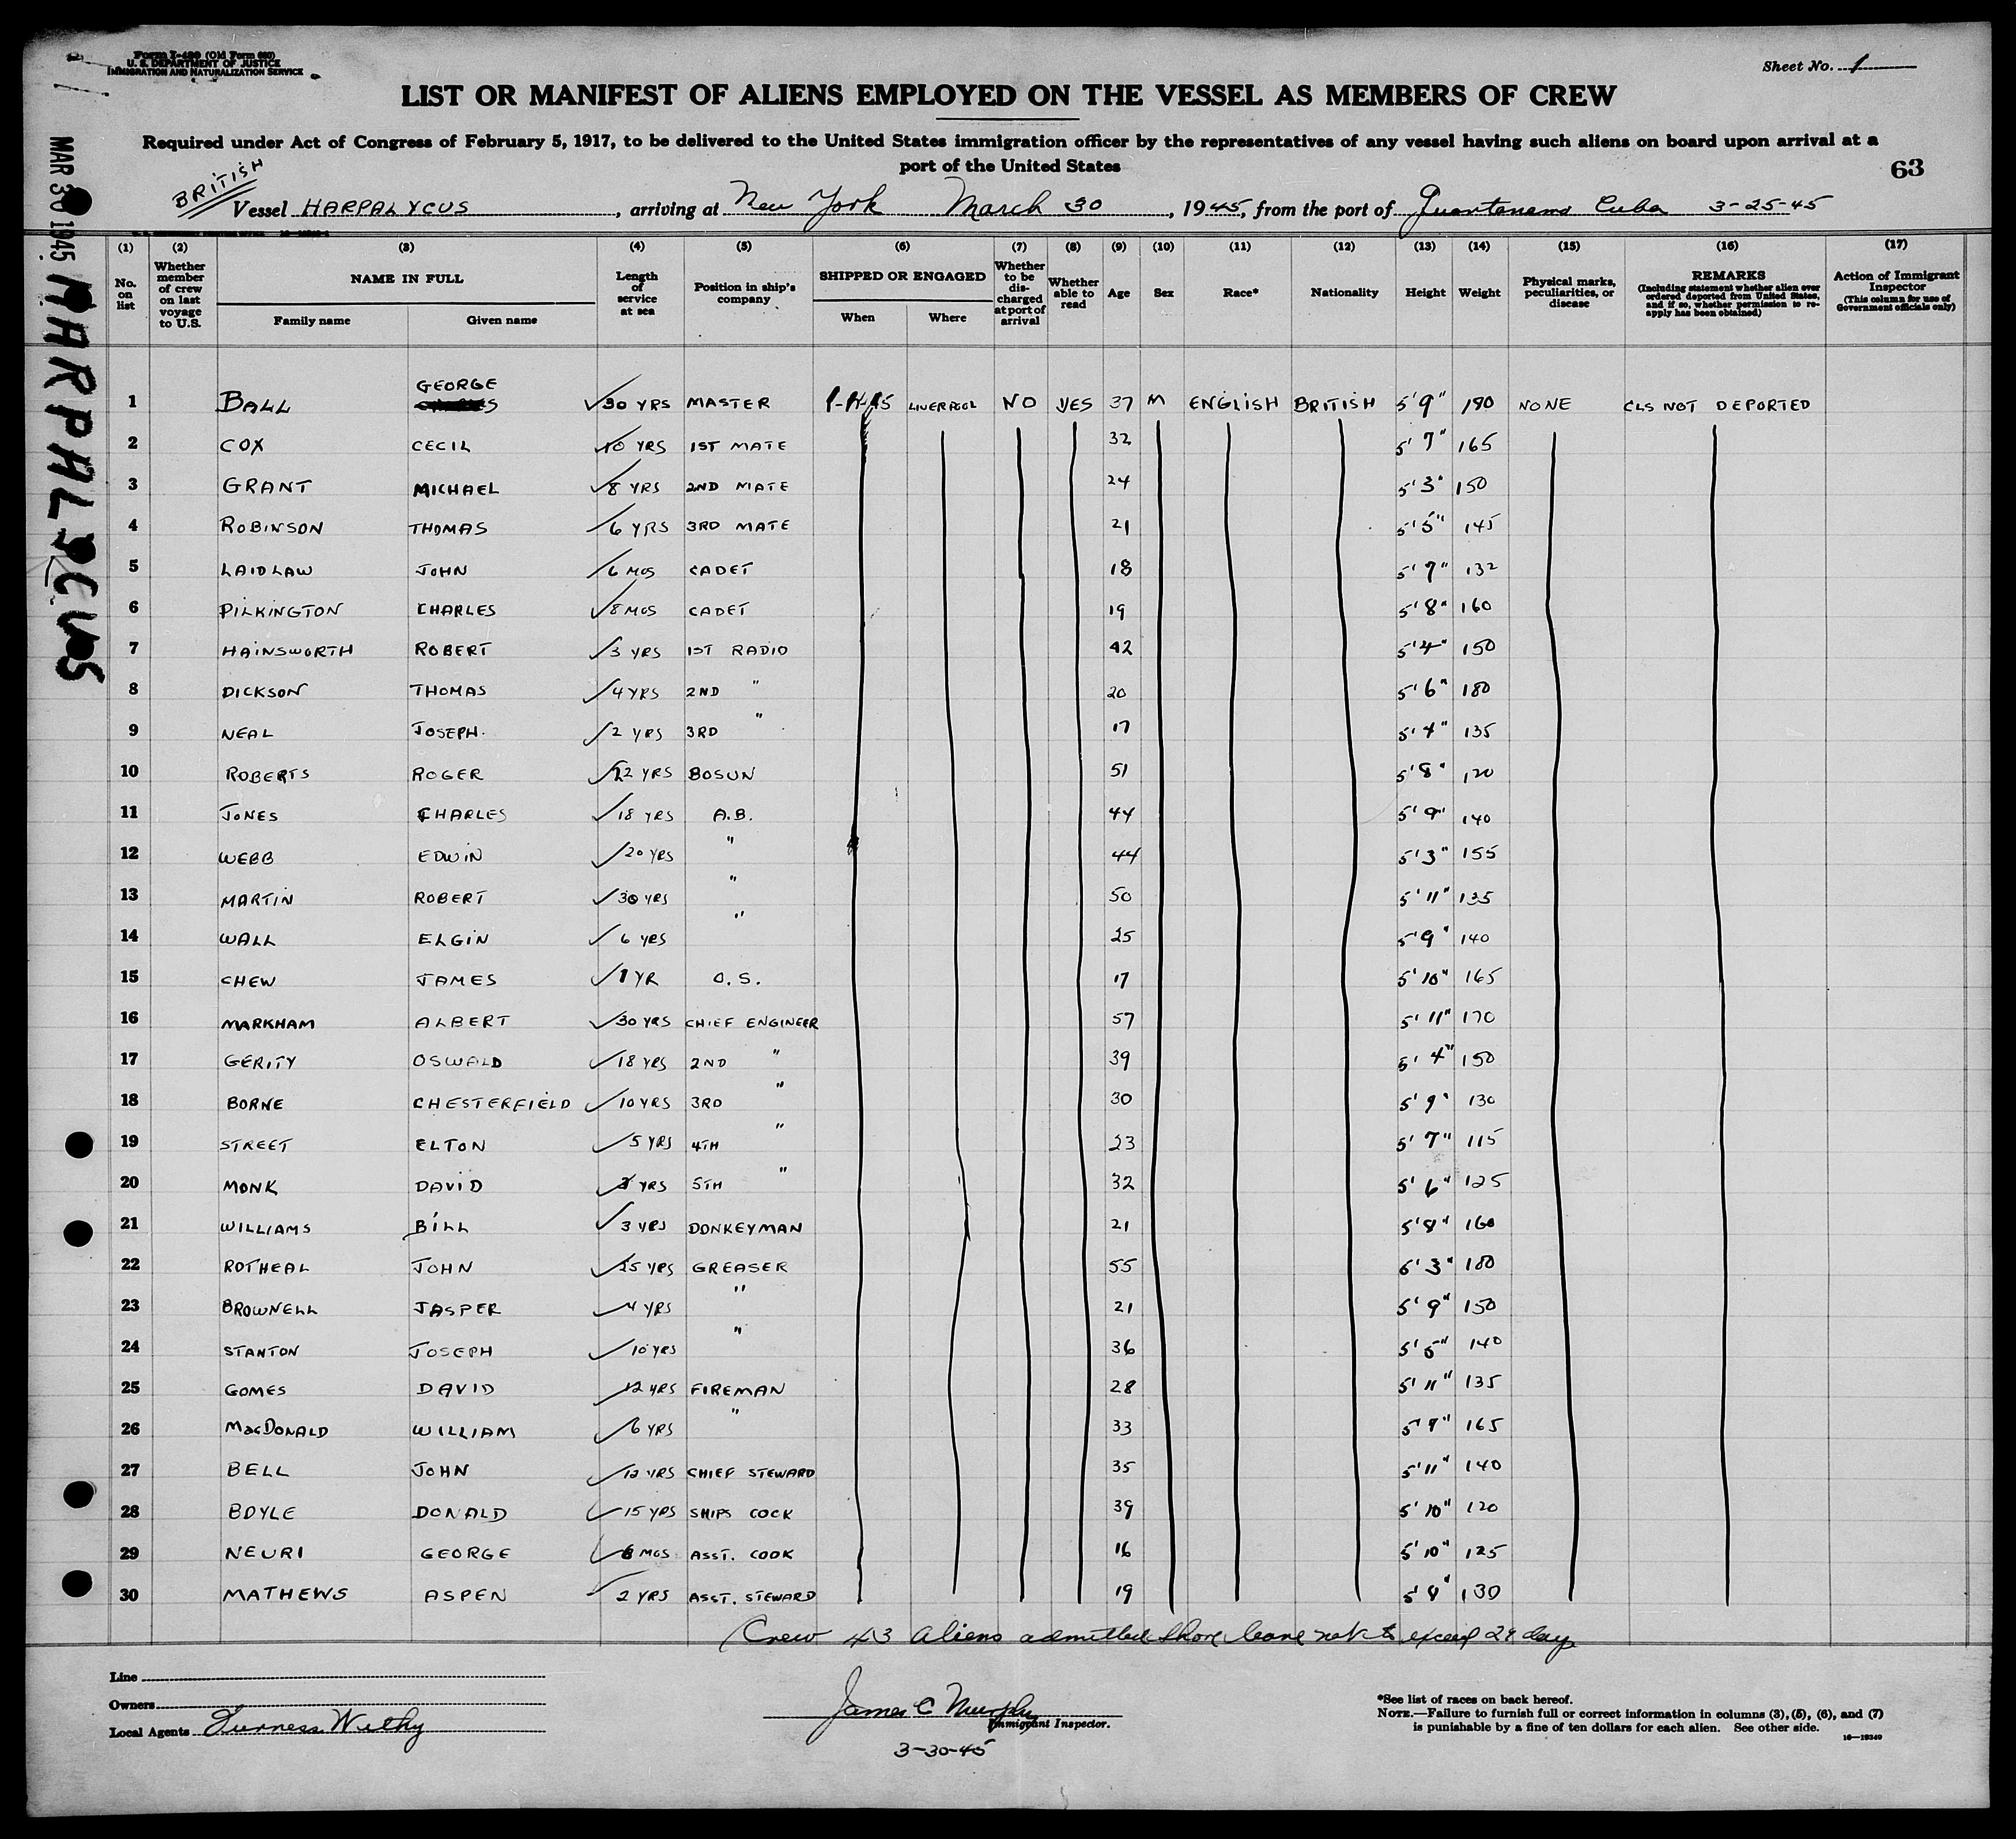 Form I-489 (Old Form 680)
U. S. DEPARTMENT OF JUSTICE
IMMIGRATION AND NATURALIZATION SERVICE
Sheet No. 1
LIST OR MANIFEST OF ALIENS EMPLOYED ON THE VESSEL AS MEMBERS OF CREW
Required under Act of Congress of February 5, 1917, to be delivered to the United States immigration officer by the representatives of any vessel having such aliens on board upon arrival at a
port of the United States
63
BRITISH
Vessel HARPALYCUS, arriving at New York March 30, 1945, from the port of Guantanamo Cuba 3-25-45
MAR 30 1945 HARPALYCUS
(1) (2) (3) (4) (5) (6) (7) (8) (9) (10) (11) (12) (13) (14) (15) (16) (17)
No. on list
Whether member of crew on last voyage to U.S.
NAME IN FULL
Family name Given name
Length of service at sea
Position in ship's company
SHIPPED OR ENGAGED
When Where
Whether to be discharged at port of arrival
Whether able to read
Age
Sex
Race*
Nationality
Height
Weight
Physical marks, peculiarities, or disease
REMARKS
(Including statement whether alien ever ordered deported from United States, and if so, whether permission to reapply has been obtained)
Action of Immigrant Inspector
(This column for use of Government officials only)
1 BALL GEORGE 30 YRS MASTER LIVERPOOL NO YES 37 M ENGLISH BRITISH 5'9" 190 NONE CLS NOT DEPORTED
2 COX CECIL 10 YRS 1ST MATE 32 5'7" 165
3 GRANT MICHAEL 8 YRS 2ND MATE 24 5'3" 150
4 ROBINSON THOMAS 6 YRS 3RD MATE 21 5'5" 145
5 LAIDLAW JOHN 6 MOS CADET 18 5'7" 132
6 PILKINGTON CHARLES 8 MOS CADET 19 5'8" 160
7 HAINSWORTH ROBERT 3 YRS 1ST RADIO 42 5'4" 150
8 DICKSON THOMAS 4 YRS 2ND " 20 5'6" 180
9 NEAL JOSEPH. 2 YRS 3RD " 17 5'4" 135
10 ROBERTS ROGER 22 YRS BOSUN 51 5'8" 120
11 JONES CHARLES 18 YRS A.B. 44 5'9" 140
12 WEBB EDWIN 20 YRS " 44 5'3" 155
13 MARTIN ROBERT 30 YRS " 50 5'11" 135
14 WALL ELGIN 6 YRS " 25 5'9" 140
15 CHEW JAMES 1 YR O.S. 17 5'10" 165
16 MARKHAM ALBERT 30 YRS CHIEF ENGINEER 57 5'11" 170
17 GERITY OSWALD 18 YRS 2ND " 39 5'4" 150
18 BORNE CHESTERFIELD 10 YRS 3RD " 30 5'9" 130
19 STREET ELTON 5 YRS 4TH " 23 5'7" 115
20 MONK DAVID YRS 5TH " 32 5'6" 125
21 WILLIAMS BILL 3 YRS DONKEYMAN 21 5'8" 160
22 ROTHEAL JOHN 25 YRS GREASER 55 6'3" 180
23 BROWNELL JASPER 4 YRS " 21 5'9" 150
24 STANTON JOSEPH 10 YRS " 36 5'5" 140
25 GOMES DAVID 12 YRS FIREMAN 28 5'11" 135
26 MacDONALD WILLIAM 6 YRS " 33 5'9" 165
27 BELL JOHN 12 YRS CHIEF STEWARD 35 5'11" 140
28 BOYLE DONALD 15 YRS SHIPS COCK 39 5'10" 120
29 NEURI GEORGE 6 MOS ASST. COOK 16 5'10" 125
30 MATHEWS ASPEN 2 YRS ASST. STEWARD 19 5'8" 130
Crew 43 aliens admitted shore leave not to exceed 29 days
Line
Owners
Local Agents Furness Withy
James C Murphy
Immigrant Inspector.
3-30-45
*See list of races on back hereof.
NOTE.—Failure to furnish full or correct information in columns (3), (5), (6), and (7)
is punishable by a fine of ten dollars for each alien. See other side.